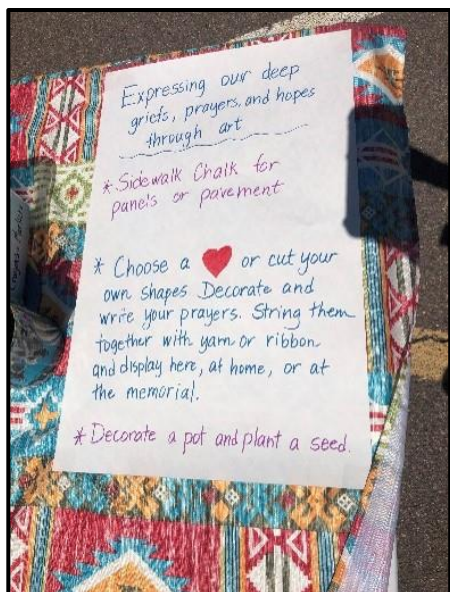 Expressing our deep
griefs, prayers, and hopes
through art
* Sidewalk Chalk for
panels or pavement
* Choose a ❤ or cut your
own shapes Decorate and
write your prayers. String them
together with yarn or ribbon
and display here, at home, or at
the memorial.
* Decorate a pot and plant a seed.